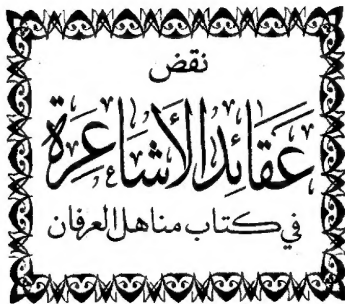 نقض
عَقَائِدِ الأَشَاعِرَة
في كتاب مناهل العرفان